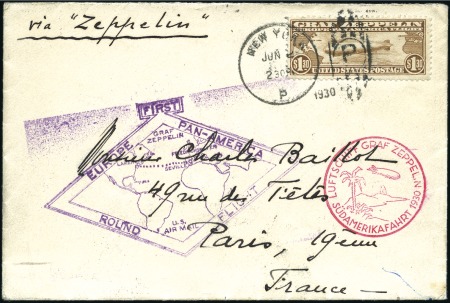 via "Zeppelin"
GRAF ZEPPELIN
$1.30 $1.30
UNITED STATES POSTAGE
NEW YORK
JUN
230
P
P
1930
FIRST
EUROPE PAN-AMERICA
GRAF ZEPPELIN
SEVILLE
U.S. AIR MAIL
ROUND FLIGHT
Monsieur Charles Baillot
49 rue des Fêtes
Paris, 19eme
France
LUFTSCHIFF GRAF ZEPPELIN
SÜDAMERIKAFAHRT 1930